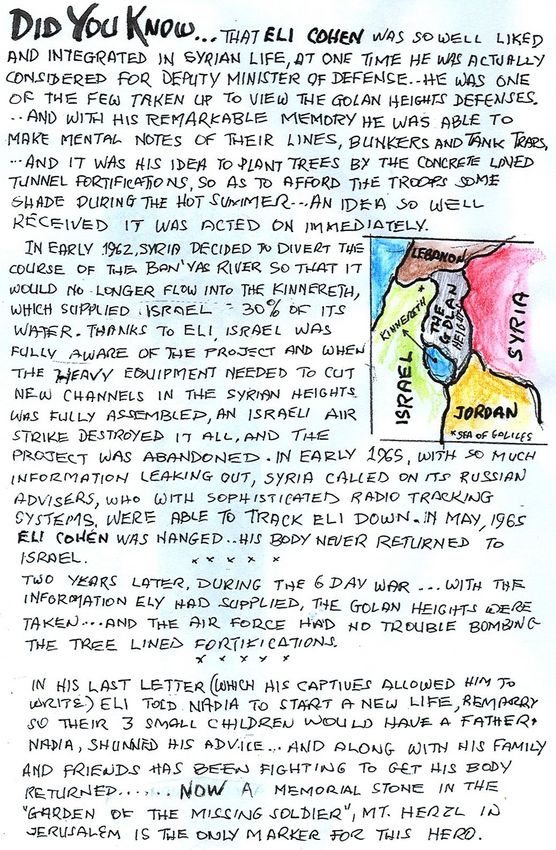 DID YOU KNOW... THAT ELI COHEN WAS SO WELL LIKED
AND INTEGRATED IN SYRIAN LIFE, AT ONE TIME HE WAS ACTUALLY
CONSIDERED FOR DEPUTY MINISTER OF DEFENSE.. HE WAS ONE
OF THE FEW TAKEN UP TO VIEW THE GOLAN HEIGHTS DEFENSES.
..AND WITH HIS REMARKABLE MEMORY HE WAS ABLE TO
MAKE MENTAL NOTES OF THEIR LINES, BUNKERS AND TANK TRAPS,
...AND IT WAS HIS IDEA TO PLANT TREES BY THE CONCRETE LINED
TUNNEL FORTIFICATIONS, SO AS TO AFFORD THE TROOPS SOME
SHADE DURING THE HOT SUMMER... AN IDEA SO WELL
RECEIVED IT WAS ACTED ON IMMEDIATELY.
IN EARLY 1962, SYRIA DECIDED TO DIVERT THE
COURSE OF THE BAN'YAS RIVER SO THAT IT
WOULD NO LONGER FLOW INTO THE KINNERETH,
WHICH SUPPLIED ISRAEL - 30% OF ITS
WATER. THANKS TO ELI, ISRAEL WAS
FULLY AWARE OF THE PROJECT AND WHEN
THE HEAVY EQUIPMENT NEEDED TO CUT
NEW CHANNELS IN THE SYRIAN HEIGHTS
WAS FULLY ASSEMBLED, AN ISRAELI AIR
STRIKE DESTROYED IT ALL, AND THE
PROJECT WAS ABANDONED. IN EARLY 1965, WITH SO MUCH
INFORMATION LEAKING OUT, SYRIA CALLED ON ITS RUSSIAN
ADVISERS, WHO WITH SOPHISTICATED RADIO TRACKING
SYSTEMS, WERE ABLE TO TRACK ELI DOWN. IN MAY, 1965
ELI COHEN WAS HANGED.. HIS BODY NEVER RETURNED TO
ISRAEL.
x x x x x
TWO YEARS LATER, DURING THE 6 DAY WAR... WITH THE
INFORMATION ELY HAD SUPPLIED, THE GOLAN HEIGHTS WERE
TAKEN... AND THE AIR FORCE HAD NO TROUBLE BOMBING
THE TREE LINED FORTIFICATIONS.
x x x x x
IN HIS LAST LETTER (WHICH HIS CAPTIVES ALLOWED HIM TO
WRITE) ELI TOLD NADIA TO START A NEW LIFE, REMARRY
SO THEIR 3 SMALL CHILDREN WOULD HAVE A FATHER.
NADIA, SHUNNED HIS ADVICE... AND ALONG WITH HIS FAMILY
AND FRIENDS HAS BEEN FIGHTING TO GET HIS BODY
RETURNED...... NOW A MEMORIAL STONE IN THE
"GARDEN OF THE MISSING SOLDIER", MT. HERZL IN
JERUSALEM IS THE ONLY MARKER FOR THIS HERO.
LEBANON
*
KINNERETH
THE
GOLAN
HEIGHTS
SYRIA
ISRAEL
JORDAN
*SEA OF GALILEE